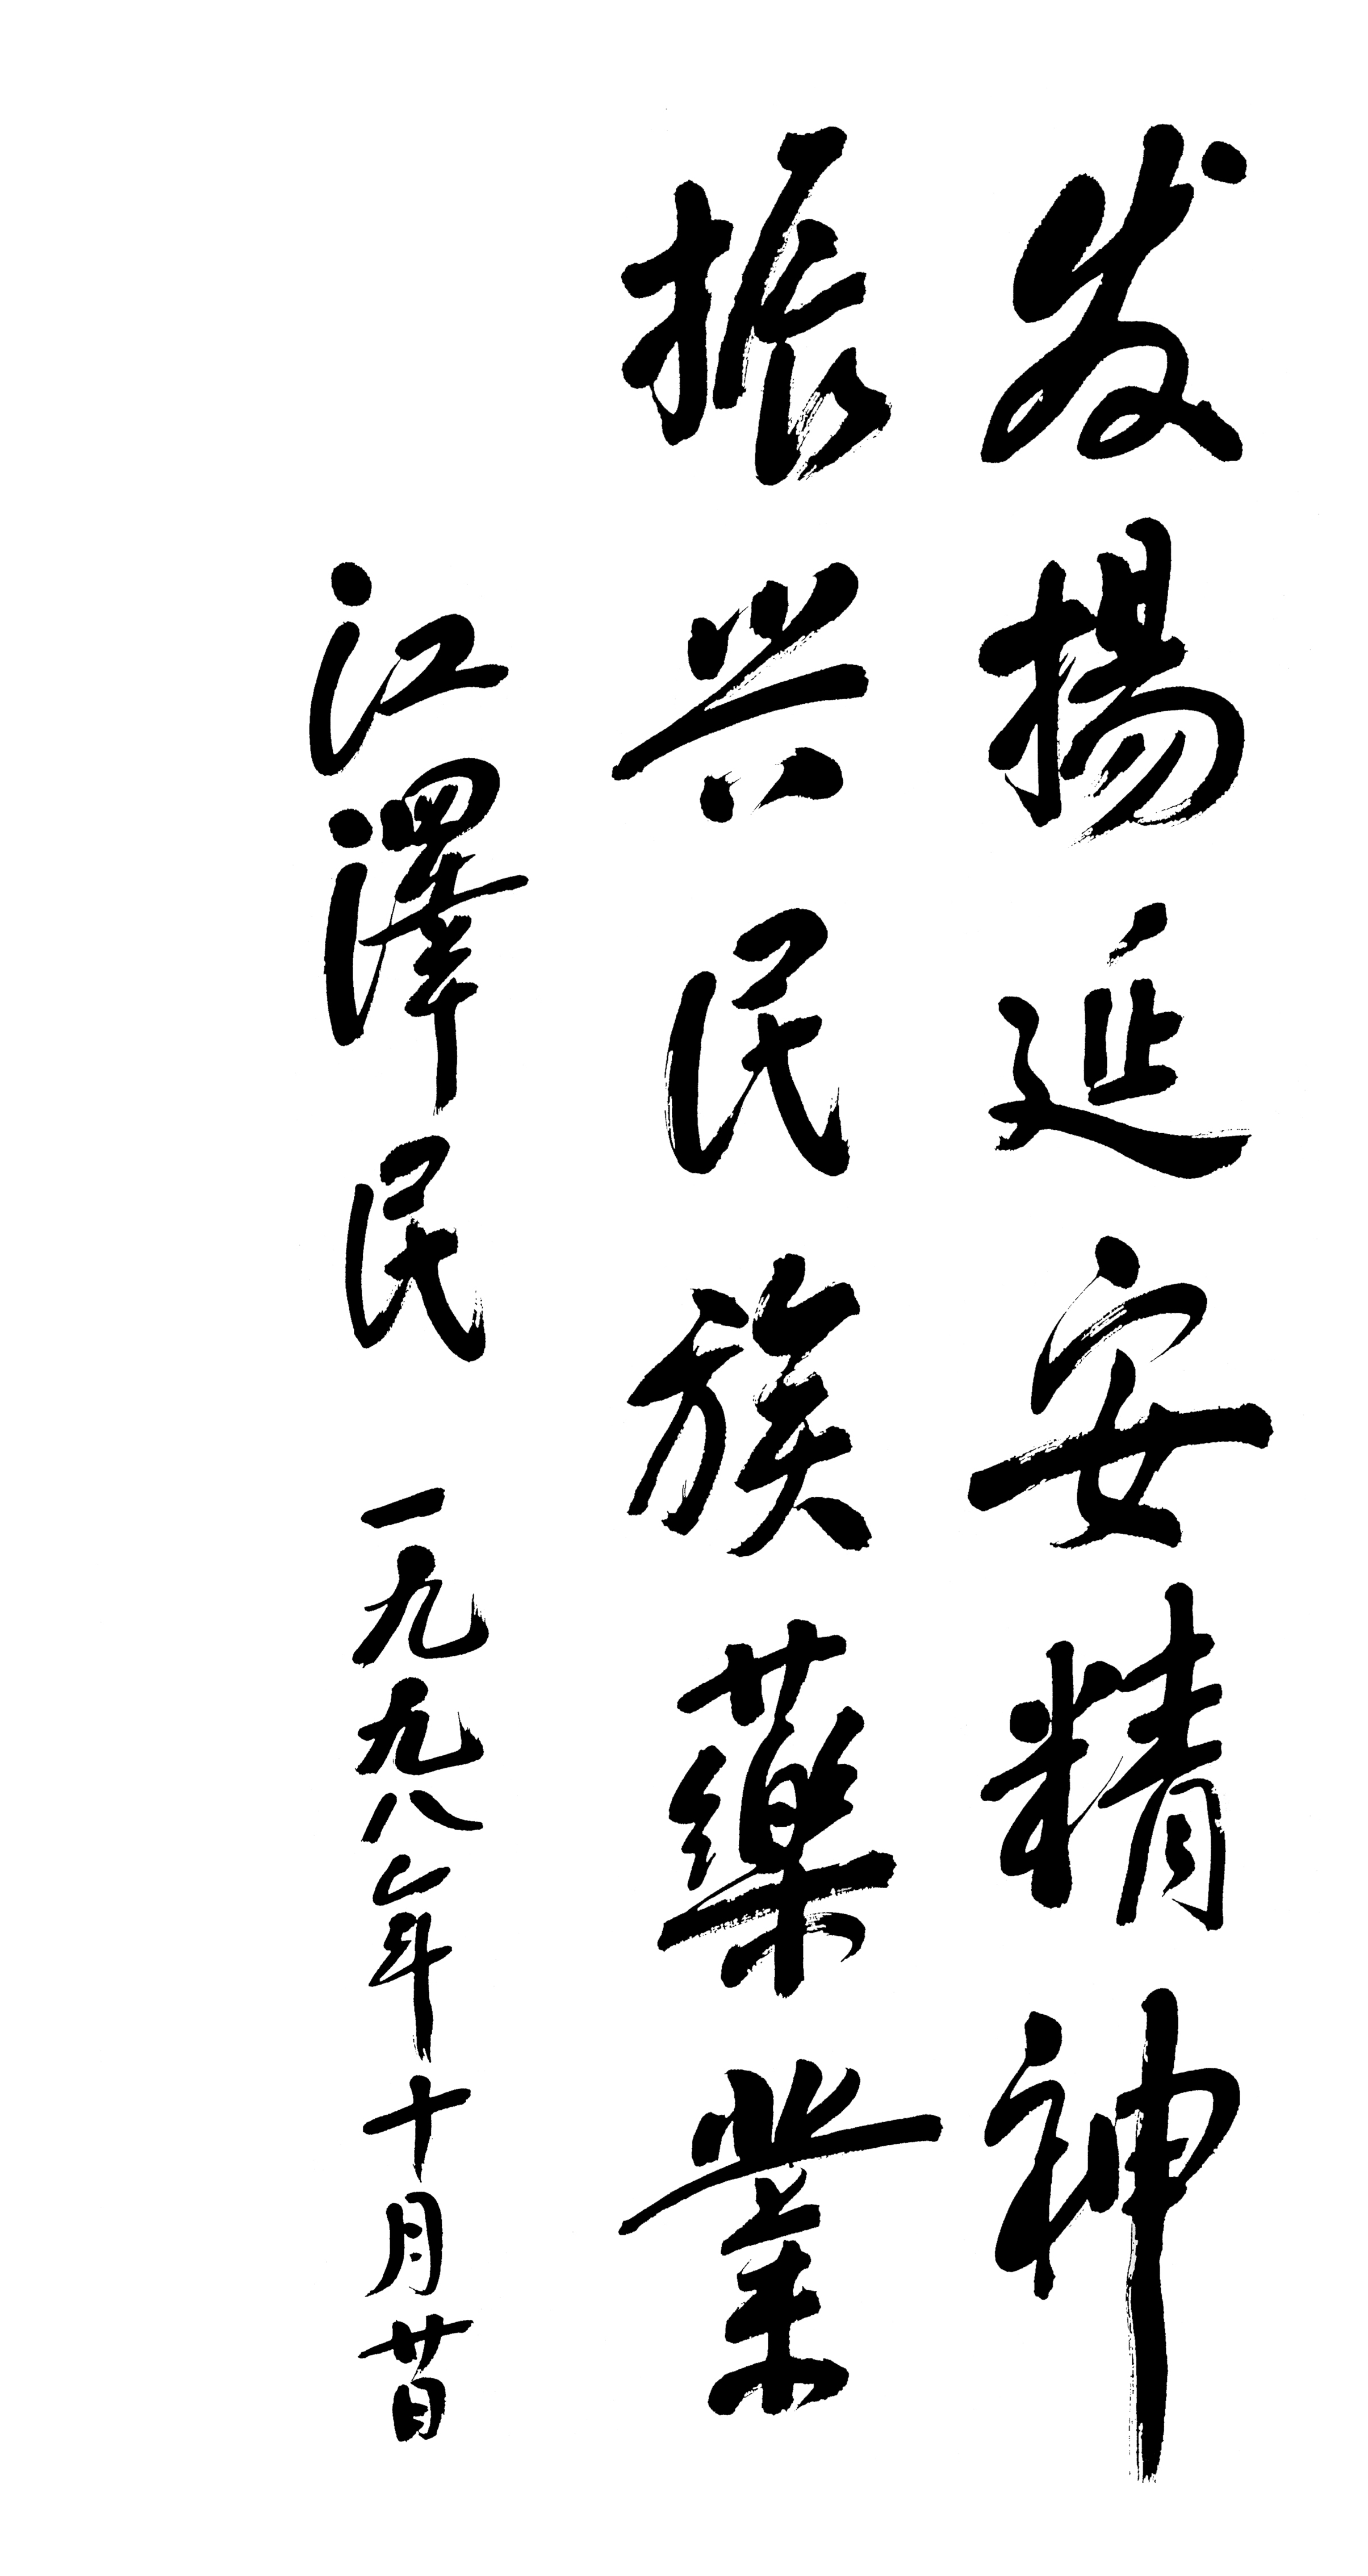 发揚延安精神
振兴民族藥業
江澤民 一九九八年十月廿日